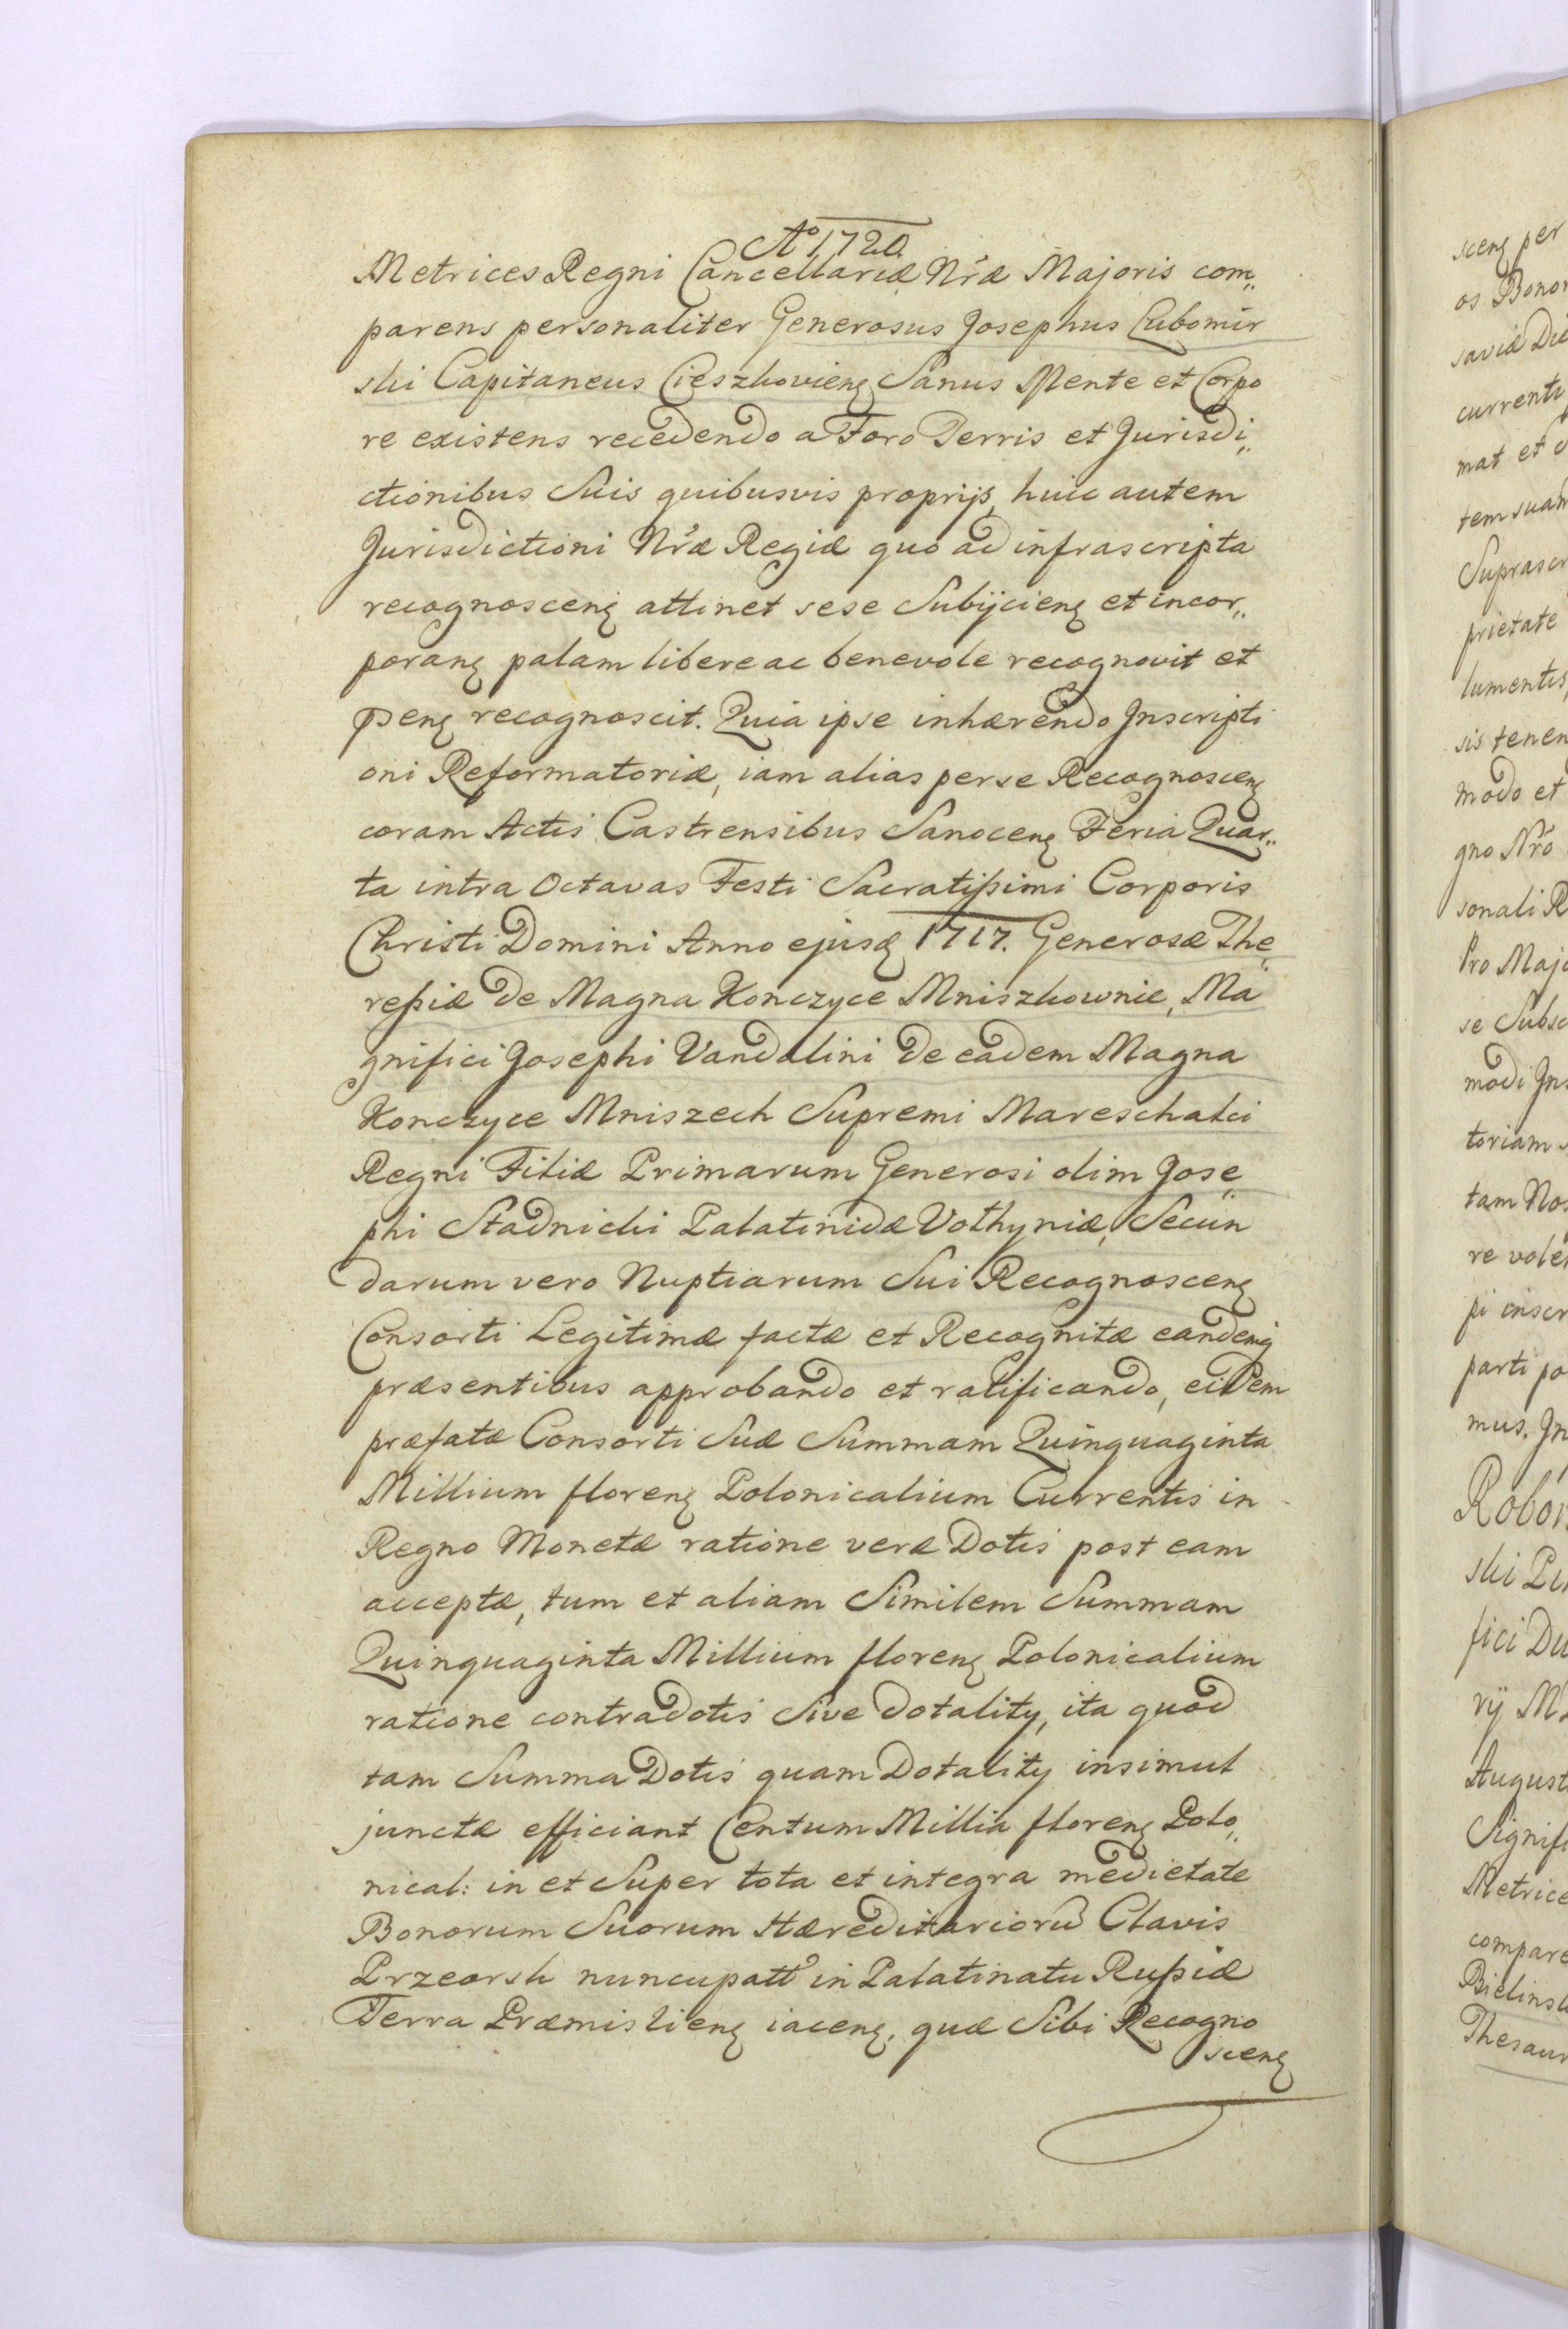 Aº 1720.
Metrices Regni Cancellariæ Nræ Majoris com„
parens personaliter Generosus Josephus Lubomir
ski Capitaneus Cieszkovienꝫ Sanus Mente et Corpo
re existens recedendo a Foro Terris et Jurisdi„
ctionibus Suis quibusvis proprijs, huic autem
Jurisdictioni Nræ Regiæ quo ad infrascripta
recognoscenꝫ attinet sese Subijcienꝫ et incor„
poranꝫ palam libere ac benevole recognovit et
pꝛenꝫ recognoscit. Quia ipse inhærendo Inscripti
oni Reformatoriæ, iam alias per se Recognoscenꝫ
coram Actis Castrensibus Sanocenꝫ Feria Quar„
ta intra Octavas Festi Sacratißimi Corporis
Christi Domini Anno ejusꝫ 1717. Generosæ The„
reßiæ de Magna Konczyce Mniszkownie, Ma
gnifici Josephi Vandalini de eadem Magna
Konczyce Mniszech Supremi Mareschalci
Regni Filiæ Primarum Generosi olim Jose„
phi Stadnicki Palatinidæ Volhyniæ, Secun
darum vero Nuptiarum Sui Recognoscenꝫ
Consorti Legitimæ factæ et Recognitæ eandemꝫ
præsentibus approbando et ratificando, eidem
præfatæ Consorti Suæ Summam Quinquaginta
Millium florenꝫ Polonicalium Currentis in
Regno Monetæ ratione veræ Dotis post eam
acceptæ, tum et aliam Similem Summam
Quinquaginta Millium florenꝫ Polonicalium
ratione contradotis Sive dotality, ita quod
tam Summa Dotis quam Dotality insimul
junctæ efficiant Centum Millia florenꝫ Polo„
nical: in et Super tota et integra medietate
Bonorum Suorum Hæreditariorū Clavis
Przeorsk nuncupatt in Palatinatu Rußiæ
Terra Præmislienꝫ iacenꝫ, quæ Sibi Recogno
scenꝫ
scenꝫ per
os Bonor
saviæ Die
currenti
mat et
tem suam
Suprascr
prietate
lumentis
sis tenen
modo et
gno Nro
sonali R
Pro Majo
se Subsc
modi Ins
toriam
tam Nos
re vole
pi inscr
parti po
mus. In
Robor
ski Pi
fici Du
rij M
August
Signifi
Metrice
compare
Bielinsk
Thesaur